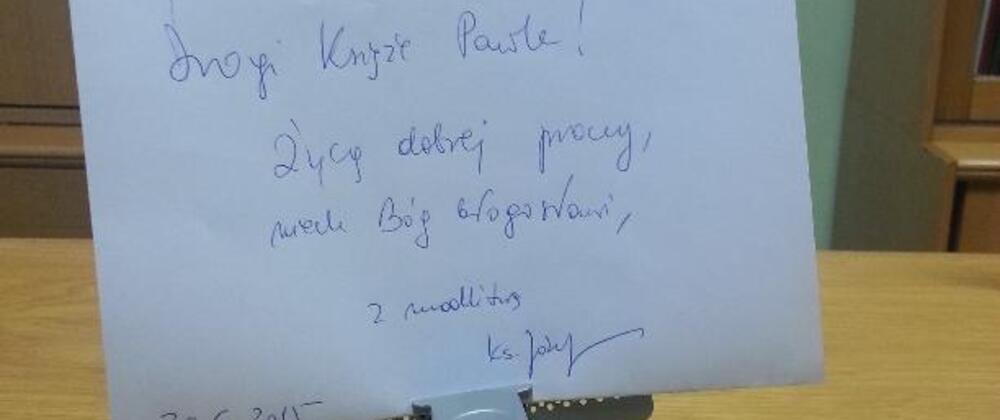 Drogi Księże Pawle!
Życzę dobrej pracy,
niech Bóg błogosławi,
z modlitwą
ks. Józef